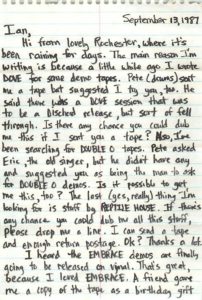 September 13, 1987
Ian,
Hi from lovely Rochester, where it's
been raining for days. The main reason I'm
writing is because a little while ago I wrote
DOVE for some demo tapes. Pete (Jawns) sent
me a tape but suggested I try you, too. He
said there was a DOVE session that was
to be a Dischord release, but sort of fell
through. Is there any chance you could dub
me this if I sent you a tape? Also, I've
been searching for DOUBLE O tapes. Pete asked
Eric, the old singer, but he didn't have any
and suggested you as being the man to ask
for DOUBLE O demos. Is it possible to get
me this, too? The last (yes, really) thing I'm
looking for is stuff by REPTILE HOUSE. If there's
any chance you could dub me all this stuff,
please drop me a line. I can send a tape
and enough return postage. Ok? Thanks a lot.
I heard the EMBRACE demos are finally
going to be released on vinyl. That's great,
because I love EMBRACE. A friend gave
me a copy of the tape as a birthday gift